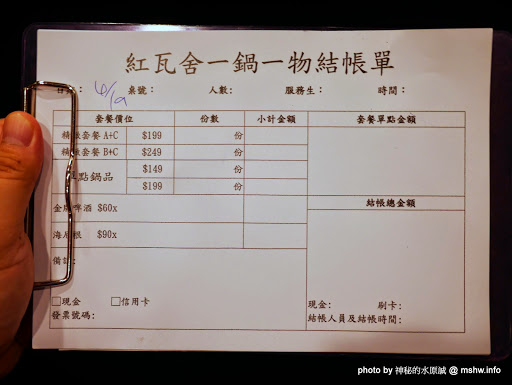 紅瓦舍一鍋一物結帳單
日期： 4/19 桌號： 人數： 服務生： 時間：
套餐價位 份數 小計金額 套餐單點金額
精緻套餐 A+C $199 份
精緻套餐 B+C $249 份
單點鍋品 $149 份
$199 份
結帳總金額
金牌啤酒 $60x
海尼根 $90x
備註：
□現金 □信用卡 現金： 刷卡：
發票號碼： 結帳人員及結帳時間：
photo by 神秘的水原誠 @ mshw.info